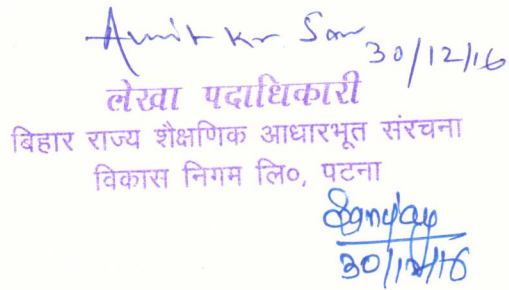 Amit Kr
30/12/16
लेखा पदाधिकारी
बिहार राज्य शैक्षणिक आधारभूत संरचना
विकास निगम लि०, पटना
Sanjay
30/12/16